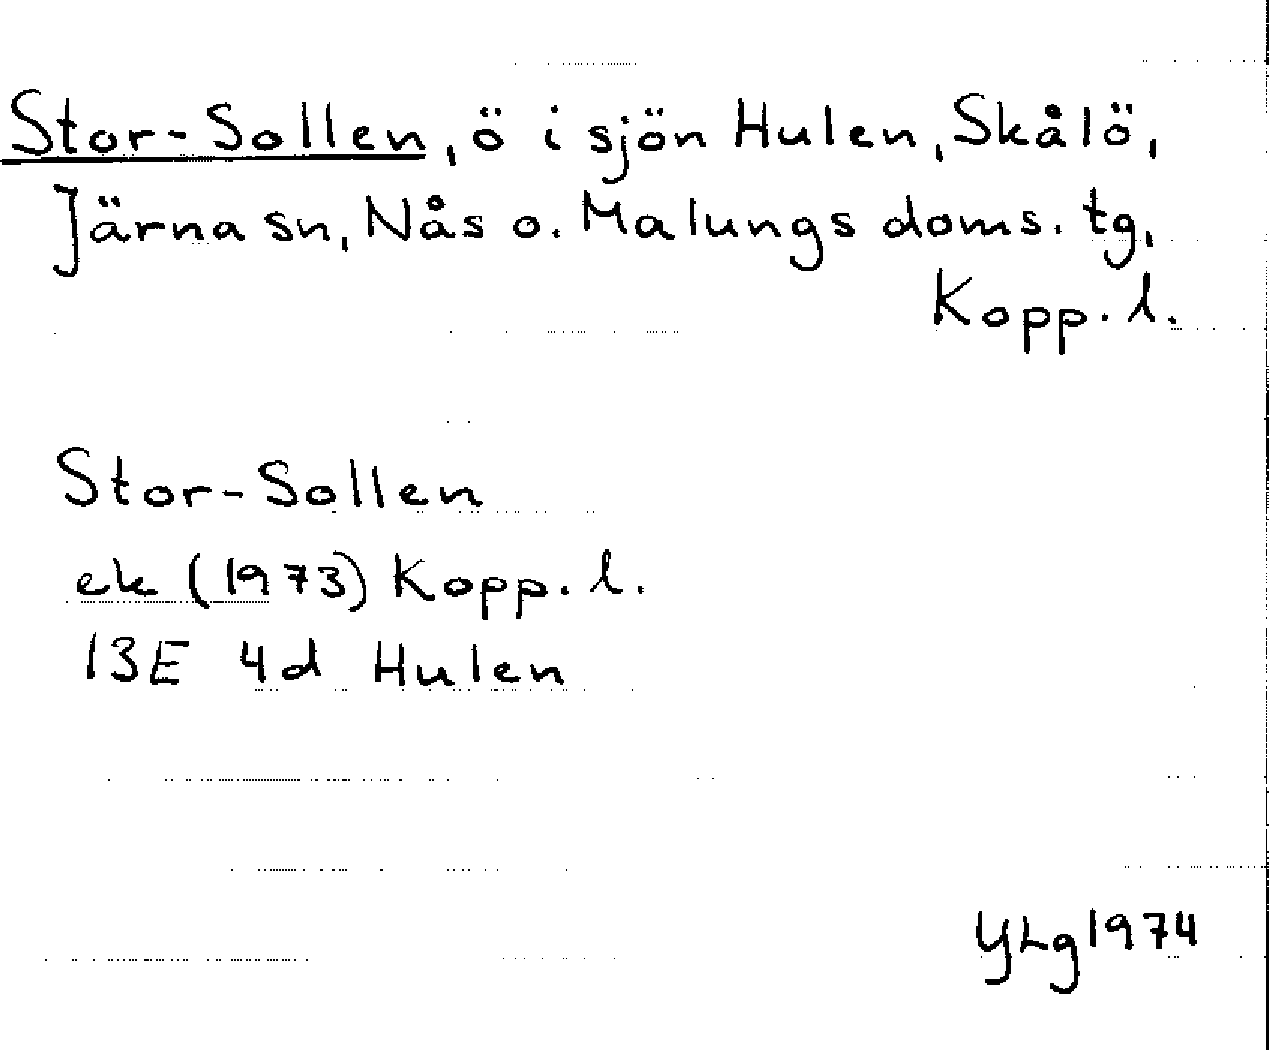 Stor-Sollen, ö i sjön Hulen, Skålö,
Järna sn, Nås o. Malungs doms. tg,
Kopp. l.
Stor-Sollen
ek (1973) Kopp. l.
13E 4d Hulen
YLg 1974